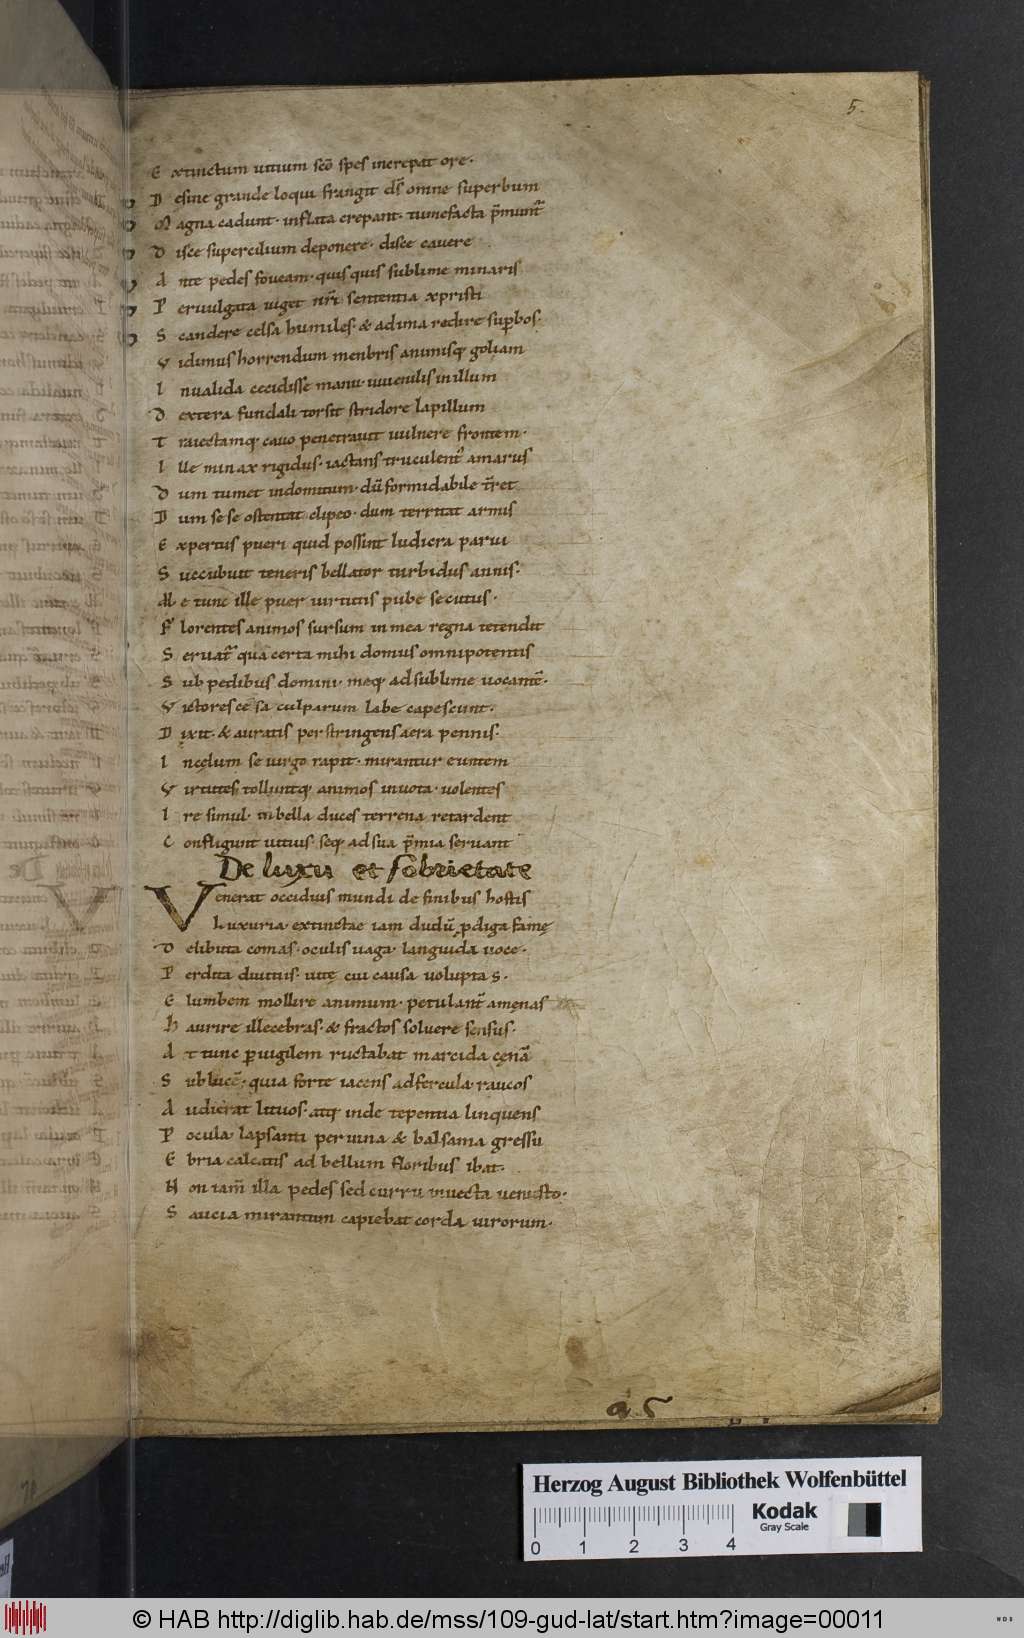 5.
Extinctum uitium scō spes increpat ore.
Desine grande loqui frangit dˢ omne superbum
Magna cadunt. inflata crepant. tumefacta p̄munt᷑
Disce supercilium deponere. disce cauere
Ante pedes foueam. quis quis sublime minaris
Peruulgata uiget nr̄i sententia xpristi
Scandere celsa humiles. & ad ima redire supbos.
Vidimus horrendum menbris animisq; goliam
Inualida cecidisse manu. iuuenilis in illum
Dextera fundali torsit stridore lapillum
Traiectamq; cauo penetrauit uulnere frontem.
Ille minax rigidus. iactans truculent᷒ amarus
Dum tumet indomitum. dū formidabile f̄ret
Dum se se ostentat clipeo. dum territat armis
Expertus pueri quid possint ludicra parui
Succubuit teneris bellator turbidus annis.
Me tunc ille puer uirtutis pube secutus.
Florentes animos sursum in mea regna tetendit
Seruat᷑ quia certa mihi domus omnipotentis
Sub pedibus domini. meq; ad sublime uocantē.
Victores cesa culparum labe capescunt.
Dixit. & auratis perstringens aera pennis.
Incęlum se uirgo rapit. mirantur euntem
Virtutes tolluntq; animos in uota. uolentes
Ire simul. ni bella duces terrena retardent
Confligunt uitiis. seq; ad sua p̄mia seruant
De luxu et sobrietate
Venerat occiduis mundi de finibus hostis
Luxuria extinctae iam dudū pdiga famę
Delibuta comas. oculis uaga. languida uoce.
Perdita diuitiis. uitę cui causa uoluptas.
Elumbem mollire animum. petulant᷑ amęnas
Haurire illecebras. & fractos soluere sensus.
At tunc puigilem ructabat marcida cęnā
Sub lucē. quia forte iacens ad fercula raucos
Audierat lituos. atq; inde tepentia linquens
Pocula lapsanti per uina & balsama gressu
Ebria calcatis ad bellum floribus ibat.
Non tam̄ illa pedes sed curru inuecta uenusto.
Saucia mirantum capiebat corda uirorum.
a 5
Herzog August Bibliothek Wolfenbüttel
0 1 2 3 4
Kodak
Gray Scale
© HAB http://diglib.hab.de/mss/109-gud-lat/start.htm?image=00011